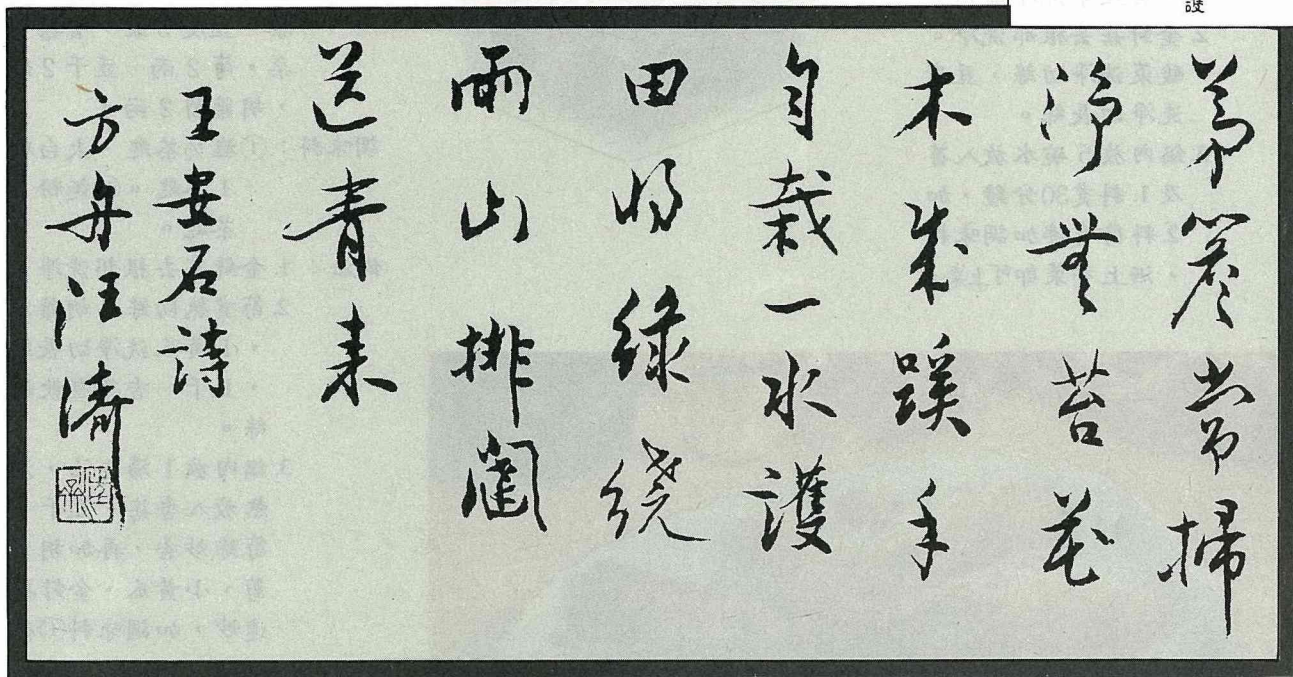 護
茅簷常掃
淨無苔花
木成蹊手
自栽一水護
田將綠繞
兩山排闥
送青來
王安石詩
方舟汪濟